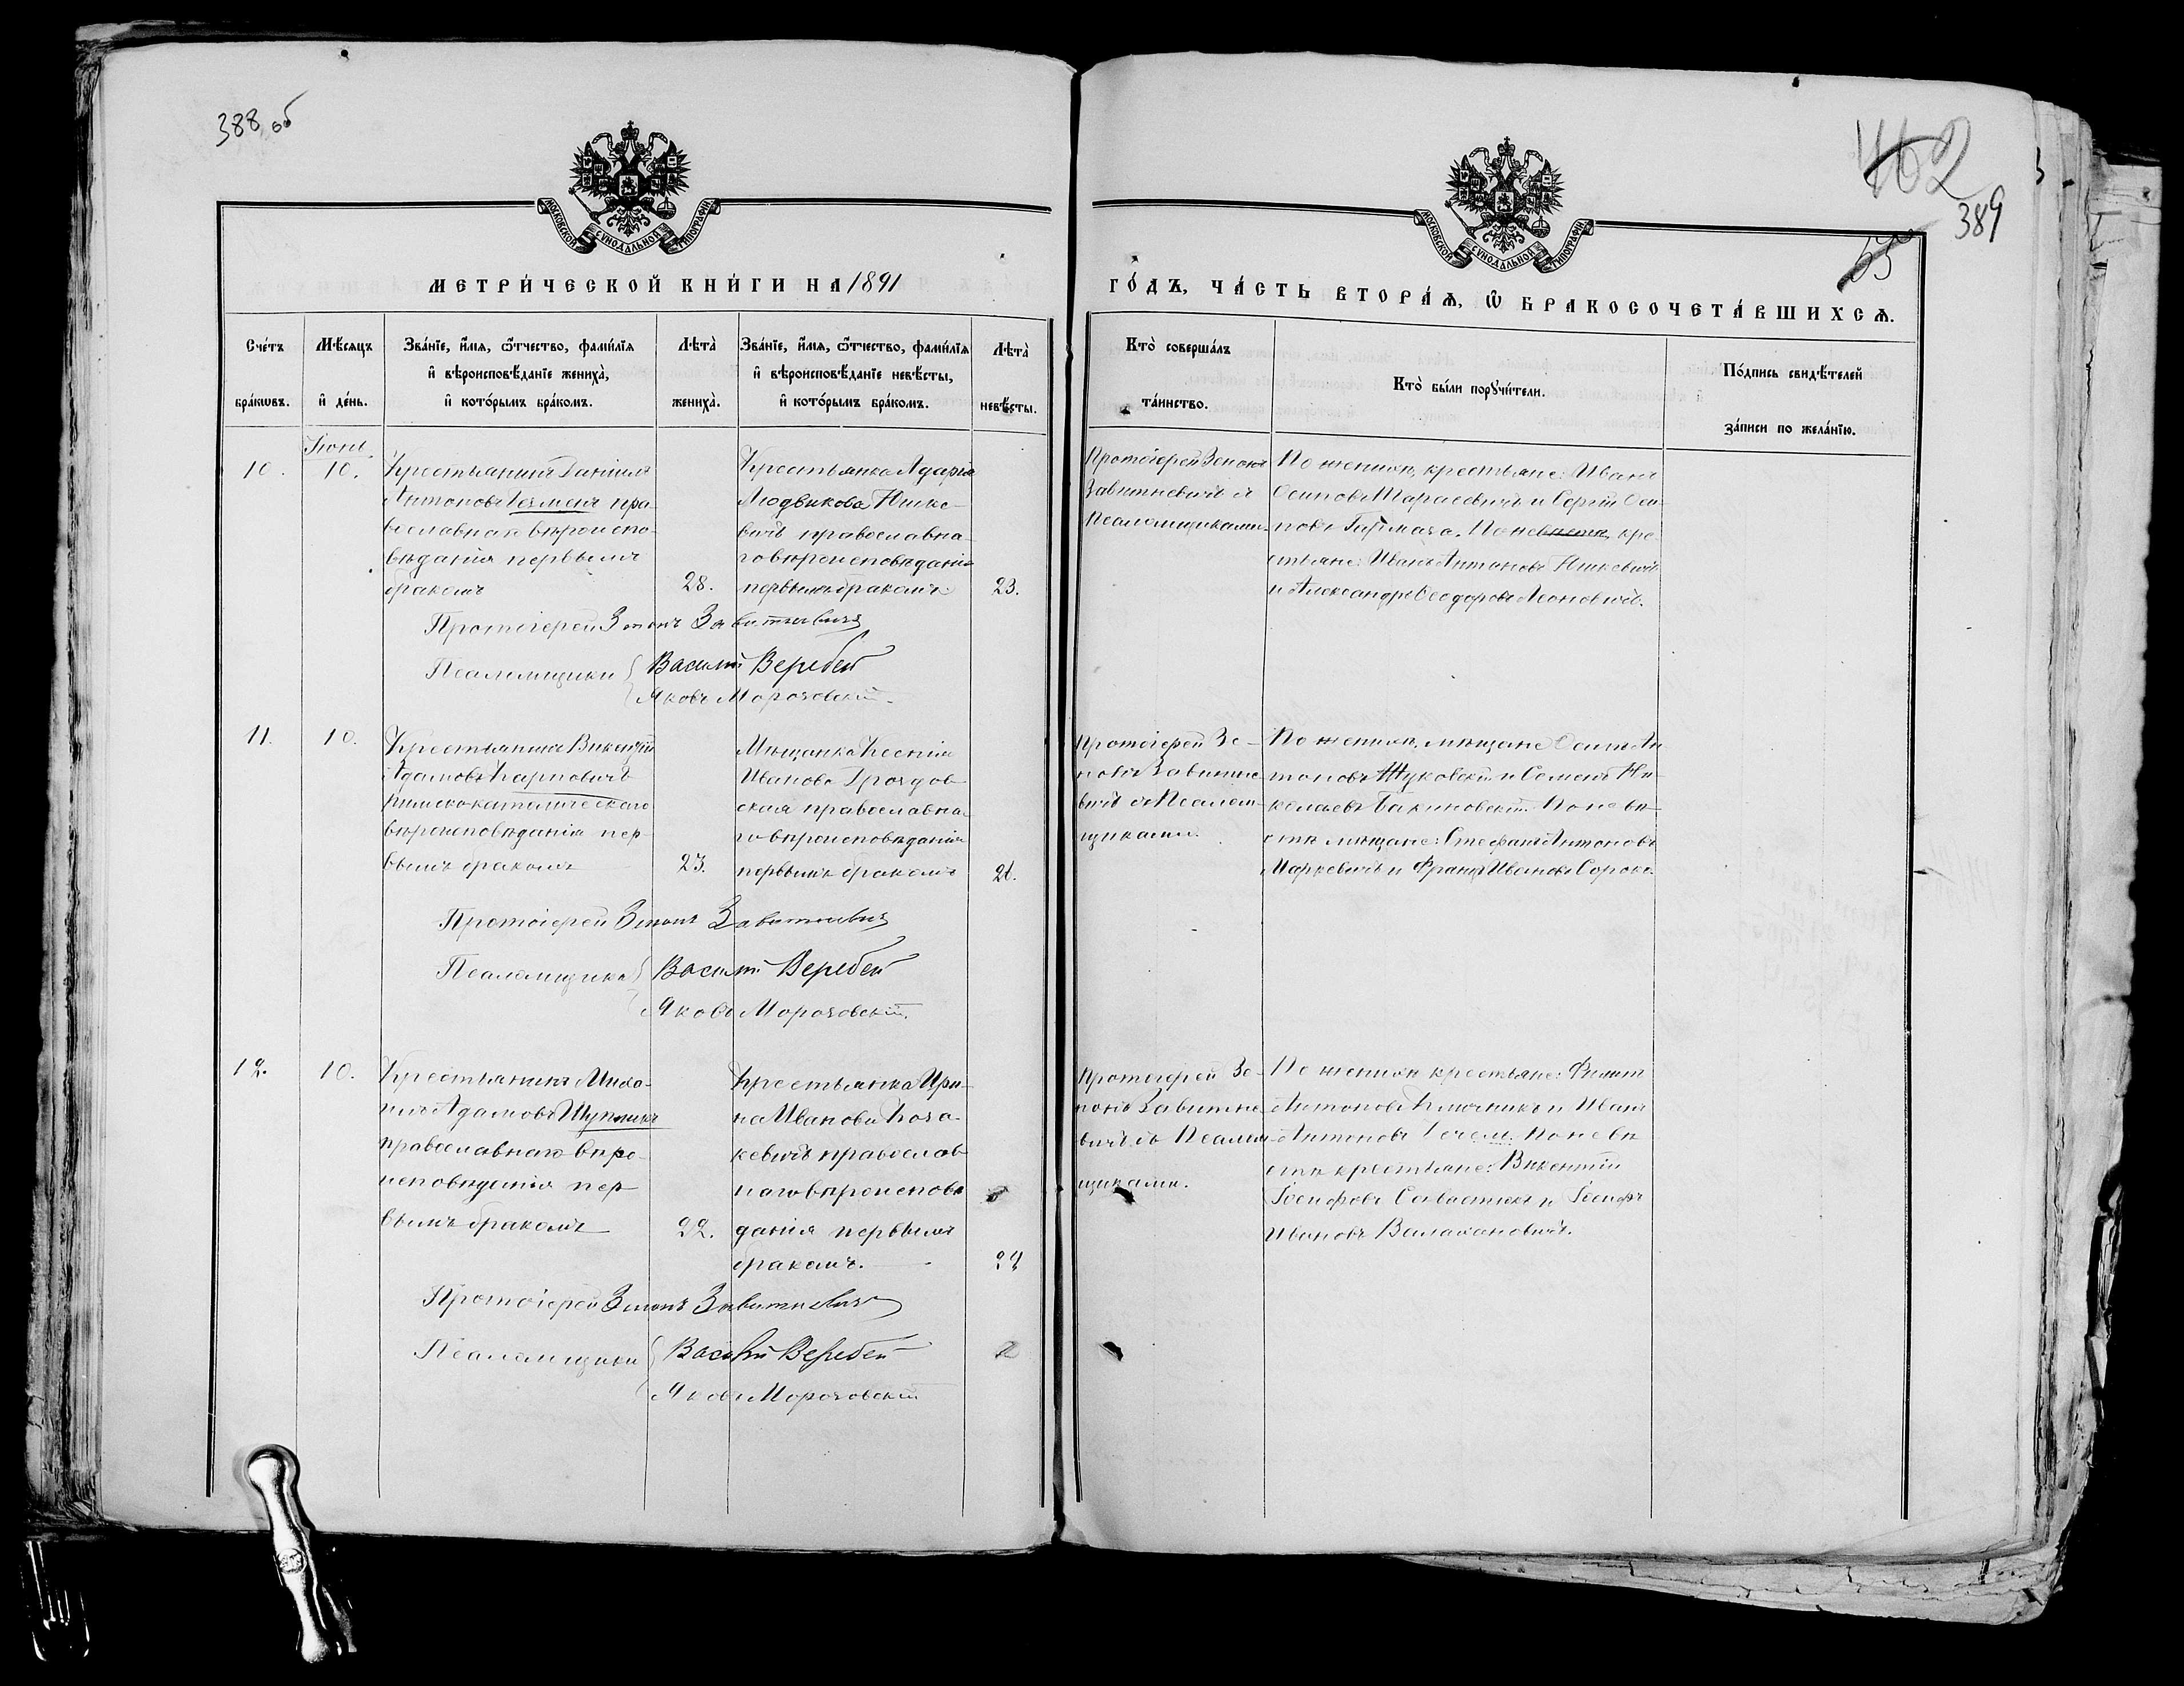 388 об
462
389
53
МОСКОВСКОЙ СѴНОДАЛЬНОЙ ТѴПОГРАФІИ
МОСКОВСКОЙ СѴНОДАЛЬНОЙ ТѴПОГРАФІИ
МЕТРИ́ЧЕСКОЙ КНИ́ГИ НА 1891
ГО́ДЪ, ЧА́СТЬ ВТОРА́Ѧ, Ѽ БРАКОСОЧЕТА́ВШИХСѦ.
Сче́тъ бра́кѡвъ.
Мѣ́сѧцъ и҆ де́нь.
Зва́нїе, и҆́мѧ, ѻ҆́тчество, фами́лїѧ
и҆ вѣроисповѣ́данїе жениха̀,
и҆ кото́рымъ бра́комъ.
Лѣта̀ жениха̀.
Зва́нїе, и҆́мѧ, ѻ҆́тчество, фами́лїѧ
и҆ вѣроисповѣ́данїе невѣ́сты,
и҆ кото́рымъ бра́комъ.
Лѣта̀ невѣ́сты.
Кто̀ соверша́лъ та́инство.
Кто̀ бы́ли порꙋчи́тели.
По́дпись свидѣ́телей за́писи по жела́нїю.
Іюнь.
10.
10.
Крестьянинъ Даніилъ
Антоновъ пра-
вославнаго вѣроиспо-
вѣданія первымъ
бракомъ
28.
Крестьянка
Людвикова
православна-
го вѣроисповѣданія
первымъ бракомъ
23.
Протоіерей Зенонъ
Завитневичъ съ
Псаломщиками
По женихѣ, крестьяне: Иванъ
Осиповъ Тарасевичъ и Сергій Оси-
повъ По невѣстѣ, кре-
стьяне: Иванъ Антоновъ
и Александръ Ѳеодоровъ Леоновичъ.
Протоіерей Зенонъ Завитневичъ
Псаломщики Василій Веребей
Яковъ Морозовскій.
11.
10.
Крестьянинъ Викентій
Адамовъ Карповичъ
Римскокатолическаго
вѣроисповѣданія пер-
вымъ бракомъ
23.
Мѣщанка Ксенія
Иванова Гроздов-
ская православна-
го вѣроисповѣданія
первымъ бракомъ
21.
Протоіерей Зе-
нонъ Завитне-
вичъ съ Псалом-
щиками.
По женихѣ, мѣщане Осипъ Ан-
тоновъ Жуковскій и Семенъ Ни-
колаевъ По невѣ-
стѣ мѣщане: Стефанъ Антоновъ
Маркевичъ и Францъ Ивановъ Сорока.
Протоіерей Зенонъ Завитневичъ
Псаломщики Василій Веребей
Яковъ Морозовскій.
12.
10.
Крестьянинъ Миха-
илъ Адамовъ
православнаго вѣро-
исповѣданія пер-
вымъ бракомъ
22.
Крестьянка Ири-
на Иванова Коза-
кевичъ православ-
наго вѣроисповѣ-
данія первымъ
бракомъ.
24
Протоіерей Зе-
нонъ Завитне-
вичъ съ Псалом-
щиками.
По женихѣ крестьяне: Филипъ
Антоновъ Ключникъ и Иванъ
Антоновъ По невѣ-
стѣ крестьяне: Викентій
Іосифовъ и Іосифъ
Ивановъ Валахановичъ.
Протоіерей Зенонъ Завитневичъ
Псаломщики Василій Веребей
Яковъ Морозовскій